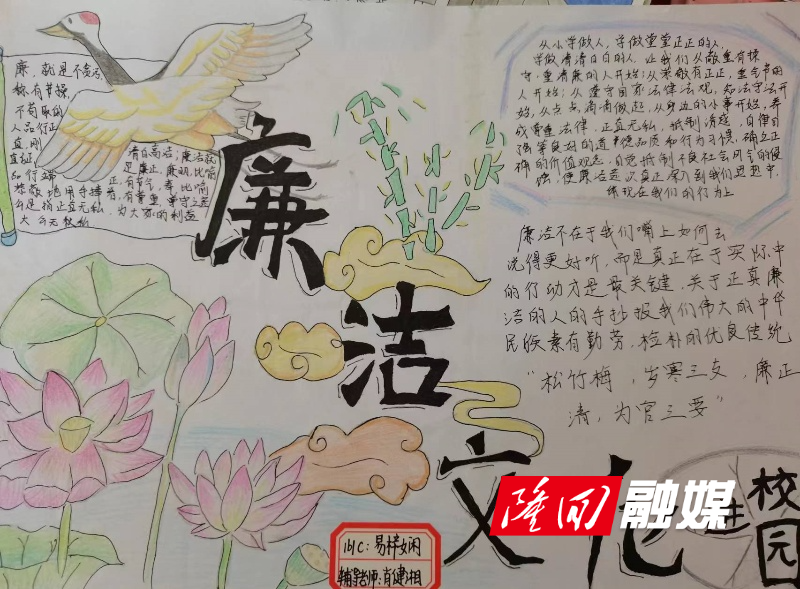 廉，就是不贪污，
称有节操，
不苟取的
人品行正
直，刚
直
品行端
清白高洁；廉洁就
是廉正，廉明，比喻
正，有节气，奉比喻
大公无私
为大家的利益
廉
洁
文化
进
校园
从小学做人，学做堂堂正正的人，
学做清清白白的人，让我们从敬重有操
守、重清廉的人开始；从崇敬有正正，重气节的
人开始；从遵守国家法律法规，知法守法开
始，从点点滴滴做起，从身边的小事开始，养
成尊重法律，正直无私，抵制诱惑，自律自
强等良好的道德品质和行为习惯，确立正
确的价值观念，自觉抵制不良社会风气的侵
蚀，使廉洁意识真正深入到我们思想中，
体现在我们的行为上
廉洁不在于我们嘴上如何去
说得更好听，而是真正在于实际中
的行动才是最关键，关于正真廉
洁的人的手抄报我们伟大的中华
民族素有勤劳，检朴的优良传统
“松竹梅，岁寒三友，廉正
清，为官三要”
隆回融媒
161C：易梓娴
辅导老师：肖健湘